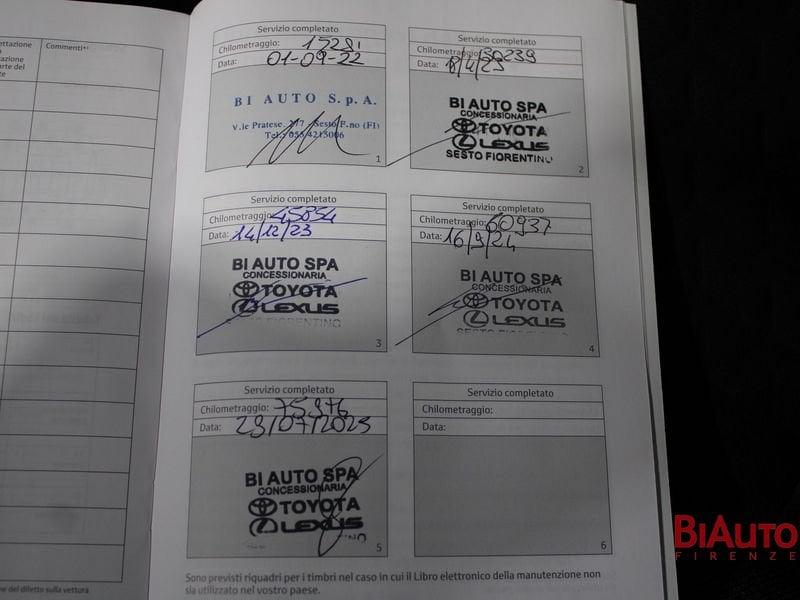 Commenti*¹
Servizio completato
Chilometraggio: 15281
Data: 01-09-22
BI AUTO S.p.A.
V.le Pratese, - Sesto F.no (FI)
Tel. 055/4215006
1
Servizio completato
Chilometraggio: 30239
Data: 8/4/23
BI AUTO SPA
CONCESSIONARIA
TOYOTA
LEXUS
SESTO FIORENTINO
2
Servizio completato
Chilometraggio: 45854
Data: 14/12/23
BI AUTO SPA
CONCESSIONARIA
TOYOTA
LEXUS
SESTO FIORENTINO
3
Servizio completato
Chilometraggio: 60937
Data: 16/9/24
BI AUTO SPA
CONCESSIONARIA
TOYOTA
LEXUS
SESTO FIORENTINO
4
Servizio completato
Chilometraggio: 75976
Data: 29/07/2025
BI AUTO SPA
CONCESSIONARIA
TOYOTA
LEXUS
5
Servizio completato
Chilometraggio:
Data:
6
Sono previsti riquadri per i timbri nel caso in cui il Libro elettronico della manutenzione non
sia utilizzato nel vostro paese.
ne del diletto sulla vettura
BIAUTO
FIRENZE